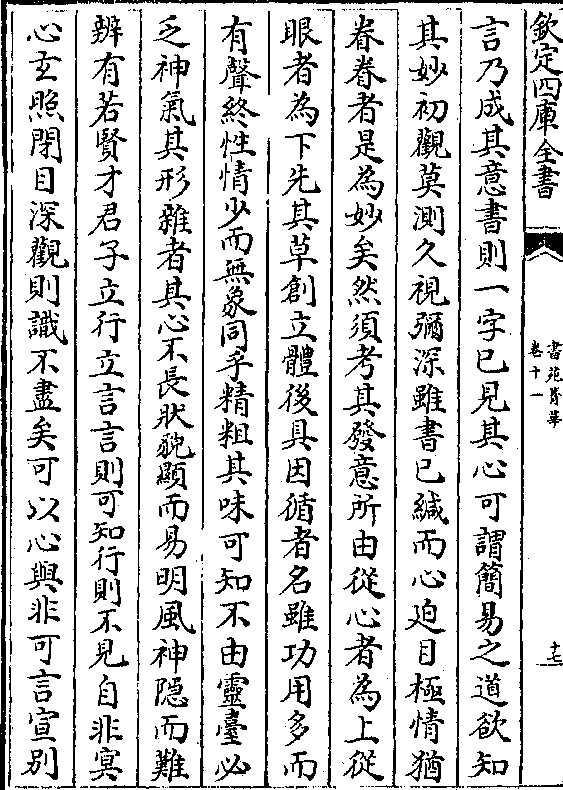 欽定四庫全書
書苑菁華
卷十一
十七
言乃成其意書則一字已見其心可謂簡易之道欲知
其妙初觀莫測久視彌深雖書已緘而心廹目極情猶
眷眷者是為妙矣然須考其發意所由從心者為上從
眼者為下先其草創立體後其因循著名雖功用多而
有聲終性情少而無象同乎糟粕其味可知不由靈臺必
乏神氣其形雜者其心不長狀貌顯而易明風神隐而難
辨有若賢才君子立行立言言則可知行則不見自非冥
心玄照閉目深觀則識不盡矣可以心與非可言宣别